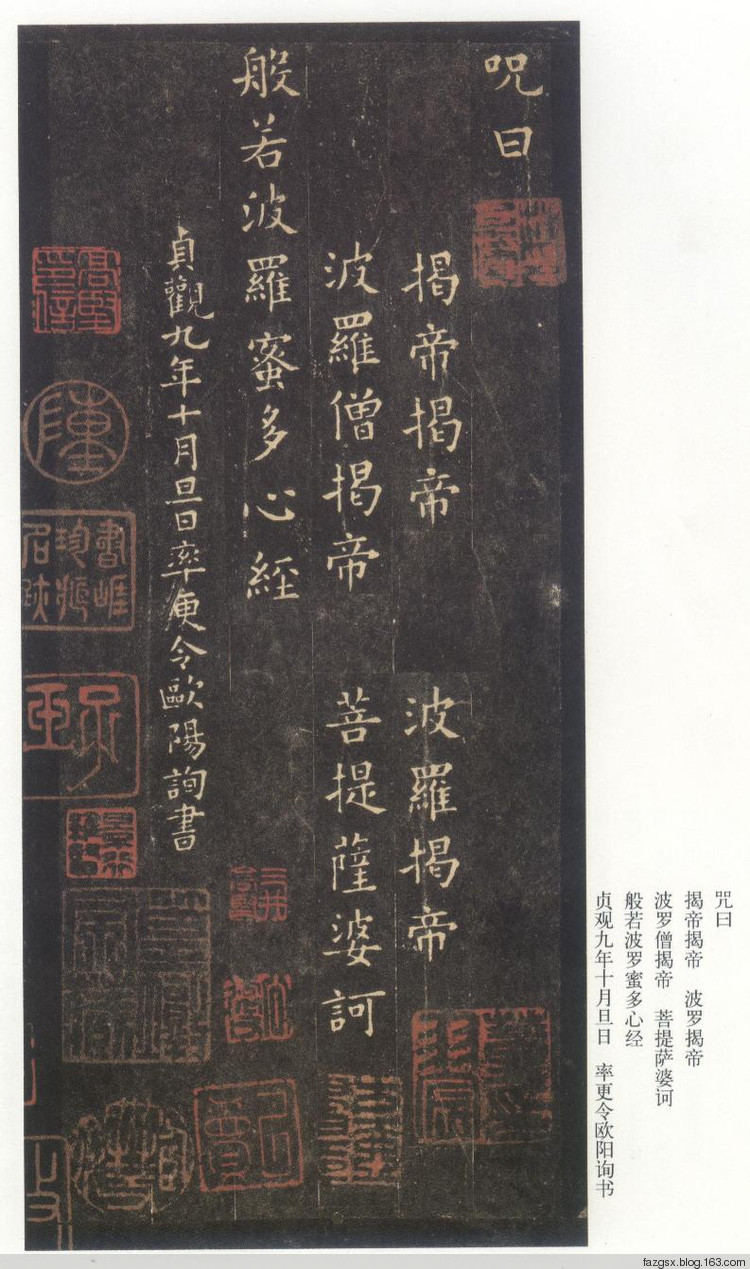 咒曰
揭帝揭帝 波羅揭帝
波羅僧揭帝 菩提薩婆訶
般若波羅蜜多心經
貞觀九年十月旦日率更令歐陽詢書
咒曰
揭帝揭帝 波罗揭帝
波罗僧揭帝 菩提萨婆诃
般若波罗蜜多心经
贞观九年十月旦日 率更令欧阳询书
fazgsx.blog.163.com